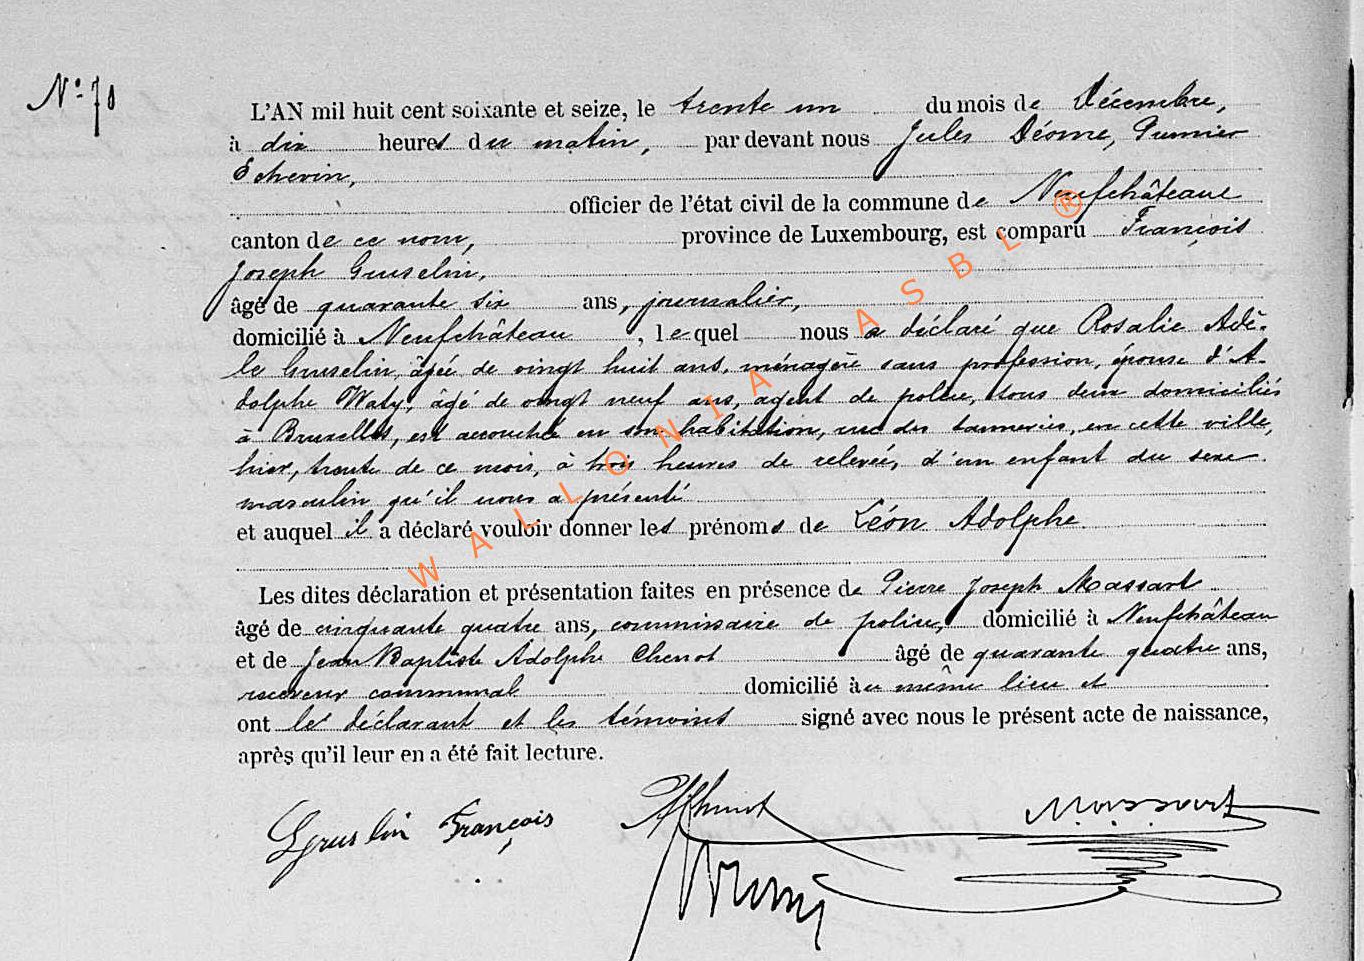 N.° 70
L'AN mil huit cent soixante et seize, le trente un du mois de Décembre,
à dix heures du matin, par devant nous Jules Déome, Premier
Echevin,
officier de l'état civil de la commune de Neufchâteau
canton de ce nom, province de Luxembourg, est comparu François
Joseph Gruselin,
âgé de quarante six ans, journalier,
domicilié à Neufchâteau, lequel nous a déclaré que Rosalie Adè-
le Gruselin, âgée de vingt huit ans, ménagère sans profession, épouse d'A-
dolphe Waty, âgé de vingt neuf ans, agent de police, tous deux domiciliés
à Bruxelles, est accouchée en son habitation, rue des tanneries, en cette ville,
hier, trente de ce mois, à trois heures de relevée, d'un enfant du sexe
masculin qu'il nous a présenté
et auquel il a déclaré vouloir donner les prénoms de Léon Adolphe
Les dites déclaration et présentation faites en présence de Pierre Joseph Massart
âgé de cinquante quatre ans, commissaire de police, domicilié à Neufchâteau
et de Jean Baptiste Adolphe Chenot âgé de quarante quatre ans,
receveur communal domicilié au même lieu et
ont le déclarant et les témoins signé avec nous le présent acte de naissance,
après qu'il leur en a été fait lecture.
Gruslin François Massart
WALLONIA ASBL ®